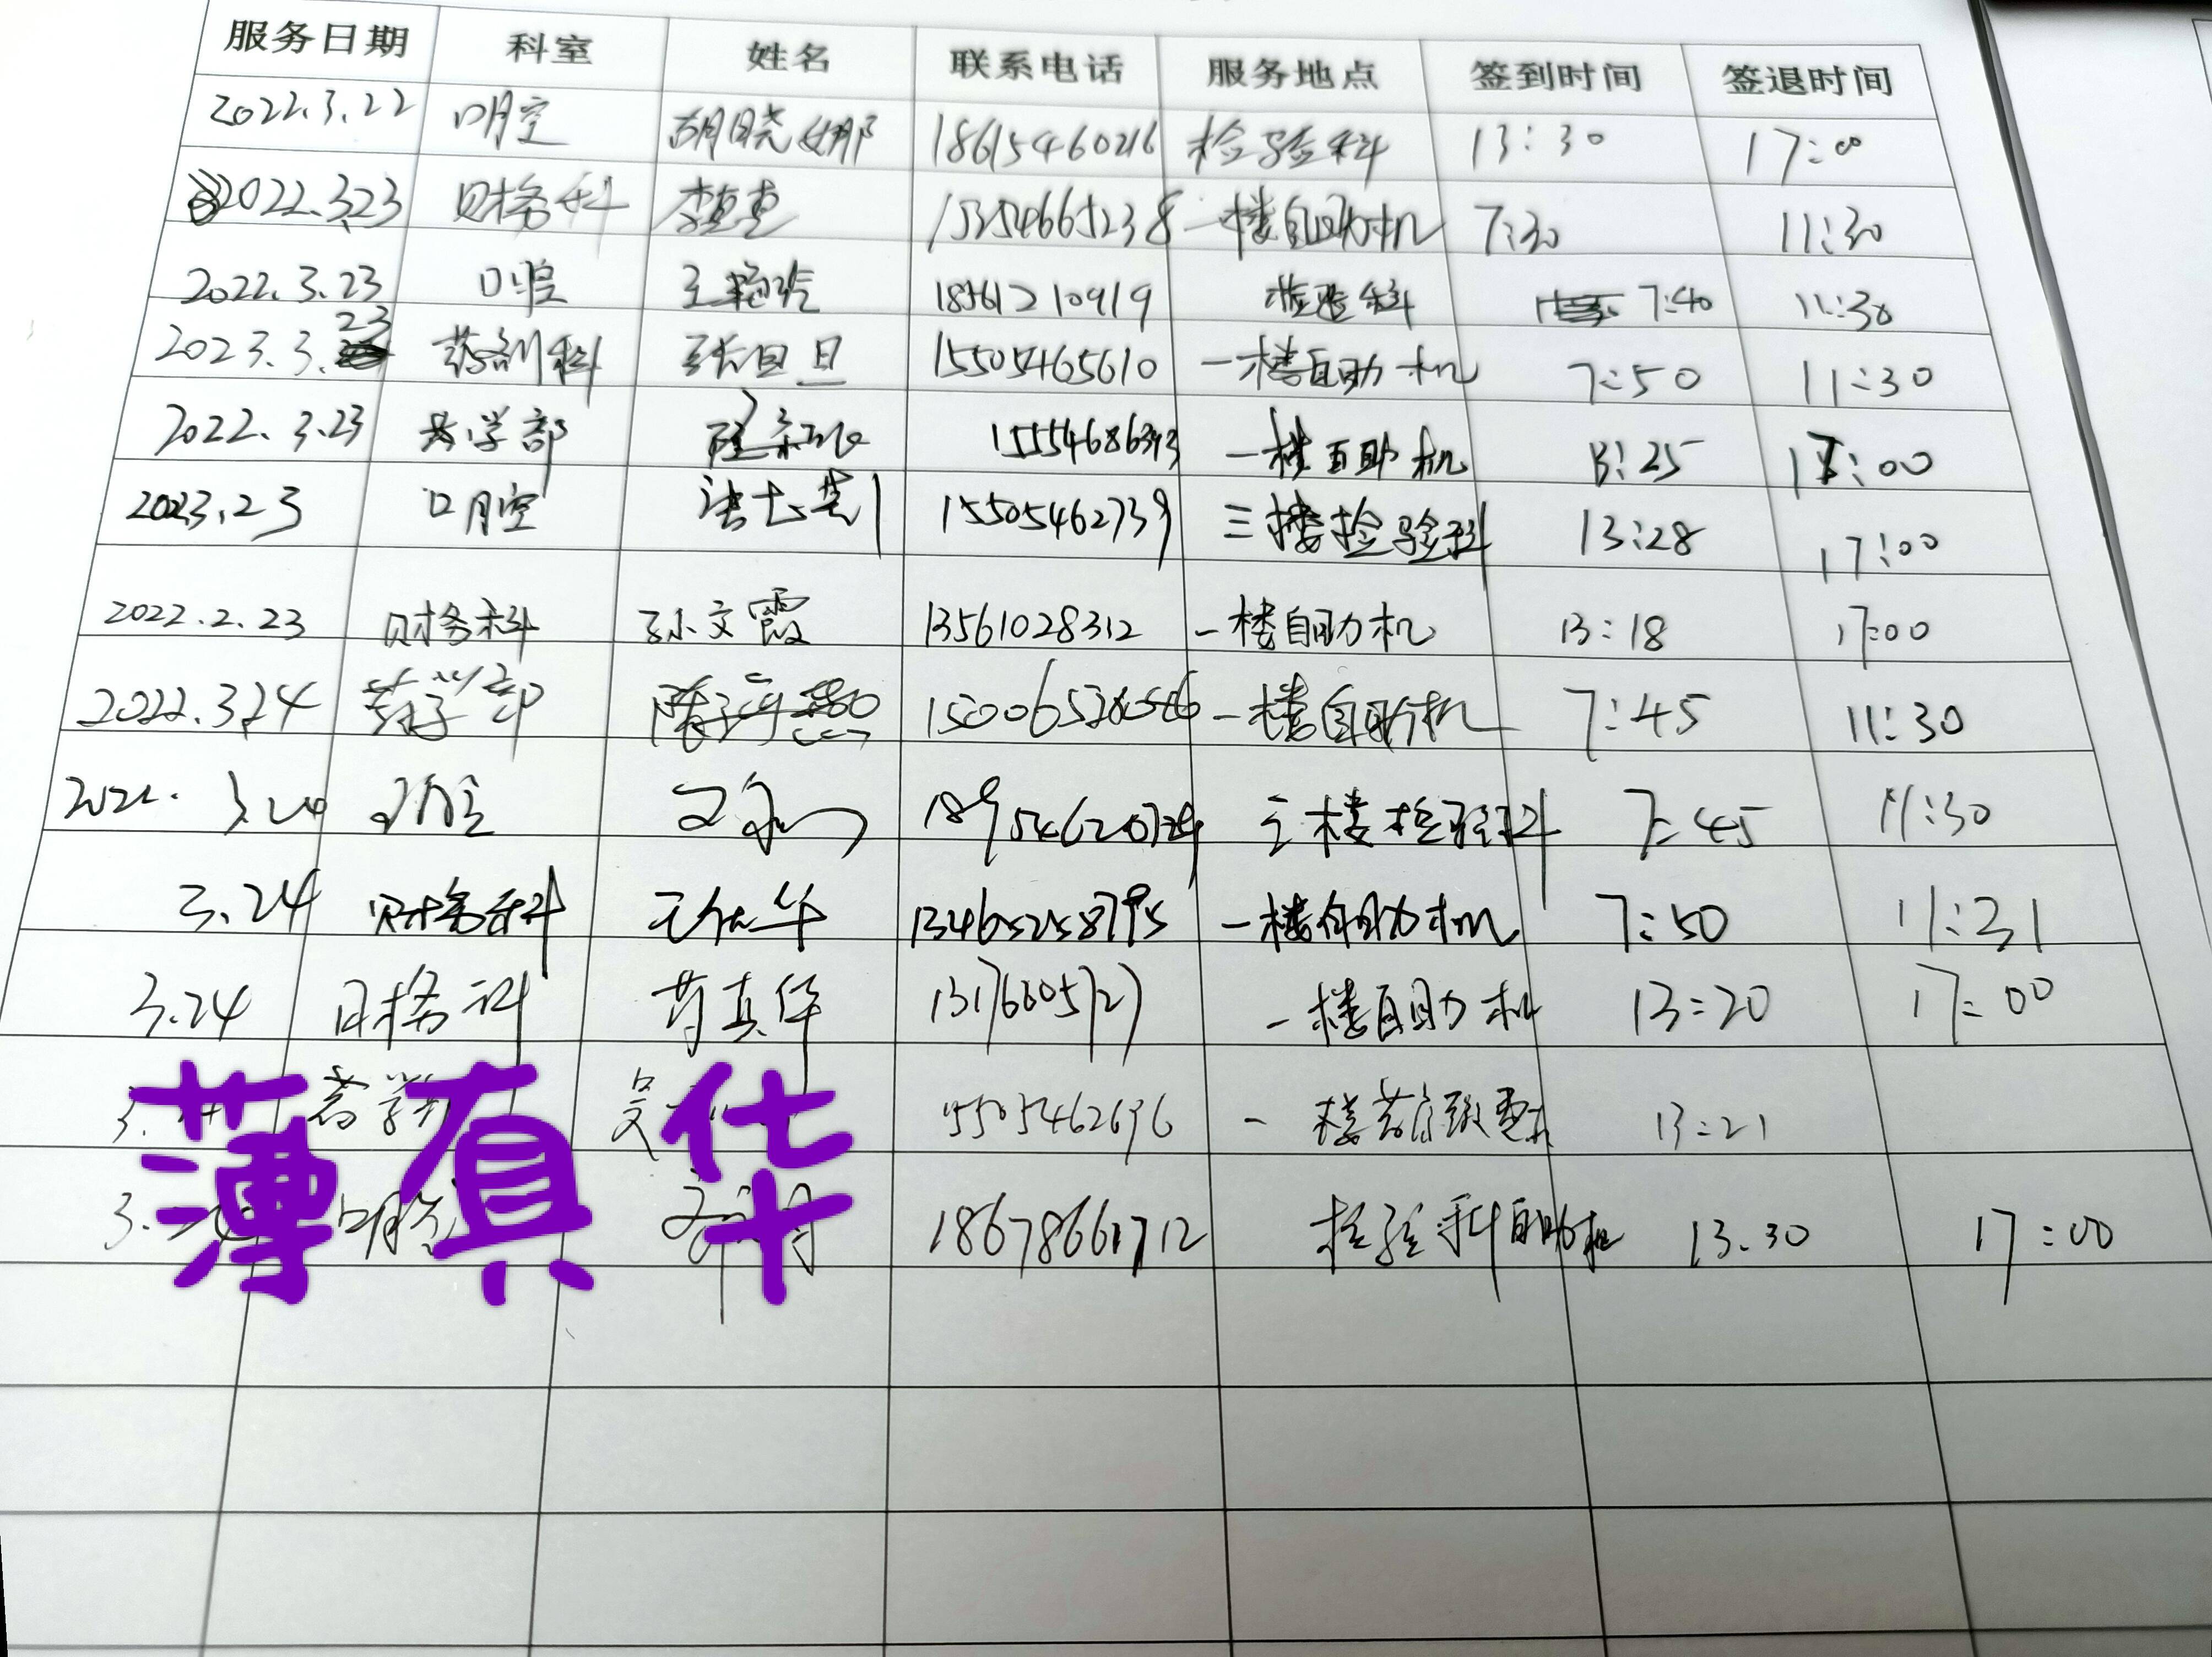 服务日期 科室 姓名 联系电话 服务地点 签到时间 签退时间
2022.3.22 口腔 胡晓娜 18615460216 检验科 13:30 17:00
2022.3.23 财务科 15254665238 一楼自助机 7:30 11:30
2022.3.23 口腔 王艳玲 18561210919 检验科 7:40 11:30
2023.3.23 药剂科 张旦旦 15505465610 一楼自助机 7:50 11:30
2022.3.23 药学部 15554686393 一楼自助机 13:25 17:00
2023.23 口腔 15505462739 三楼检验科 13:28 17:00
2022.2.23 财务科 孙文霞 13561028312 一楼自助机 13:18 17:00
2022.3.24 药学部 一楼自助机 7:45 11:30
2022. 口腔 三楼检验科 7:45 11:30
3.24 财务科 王仙华 一楼自助机 7:50 11:31
3.24 财务科 薄真华 一楼自助机 13:20 17:00
药学 吴 一楼 13:21
薄真华
3. 口腔 18678661712 检验科自助机 13.30 17:00